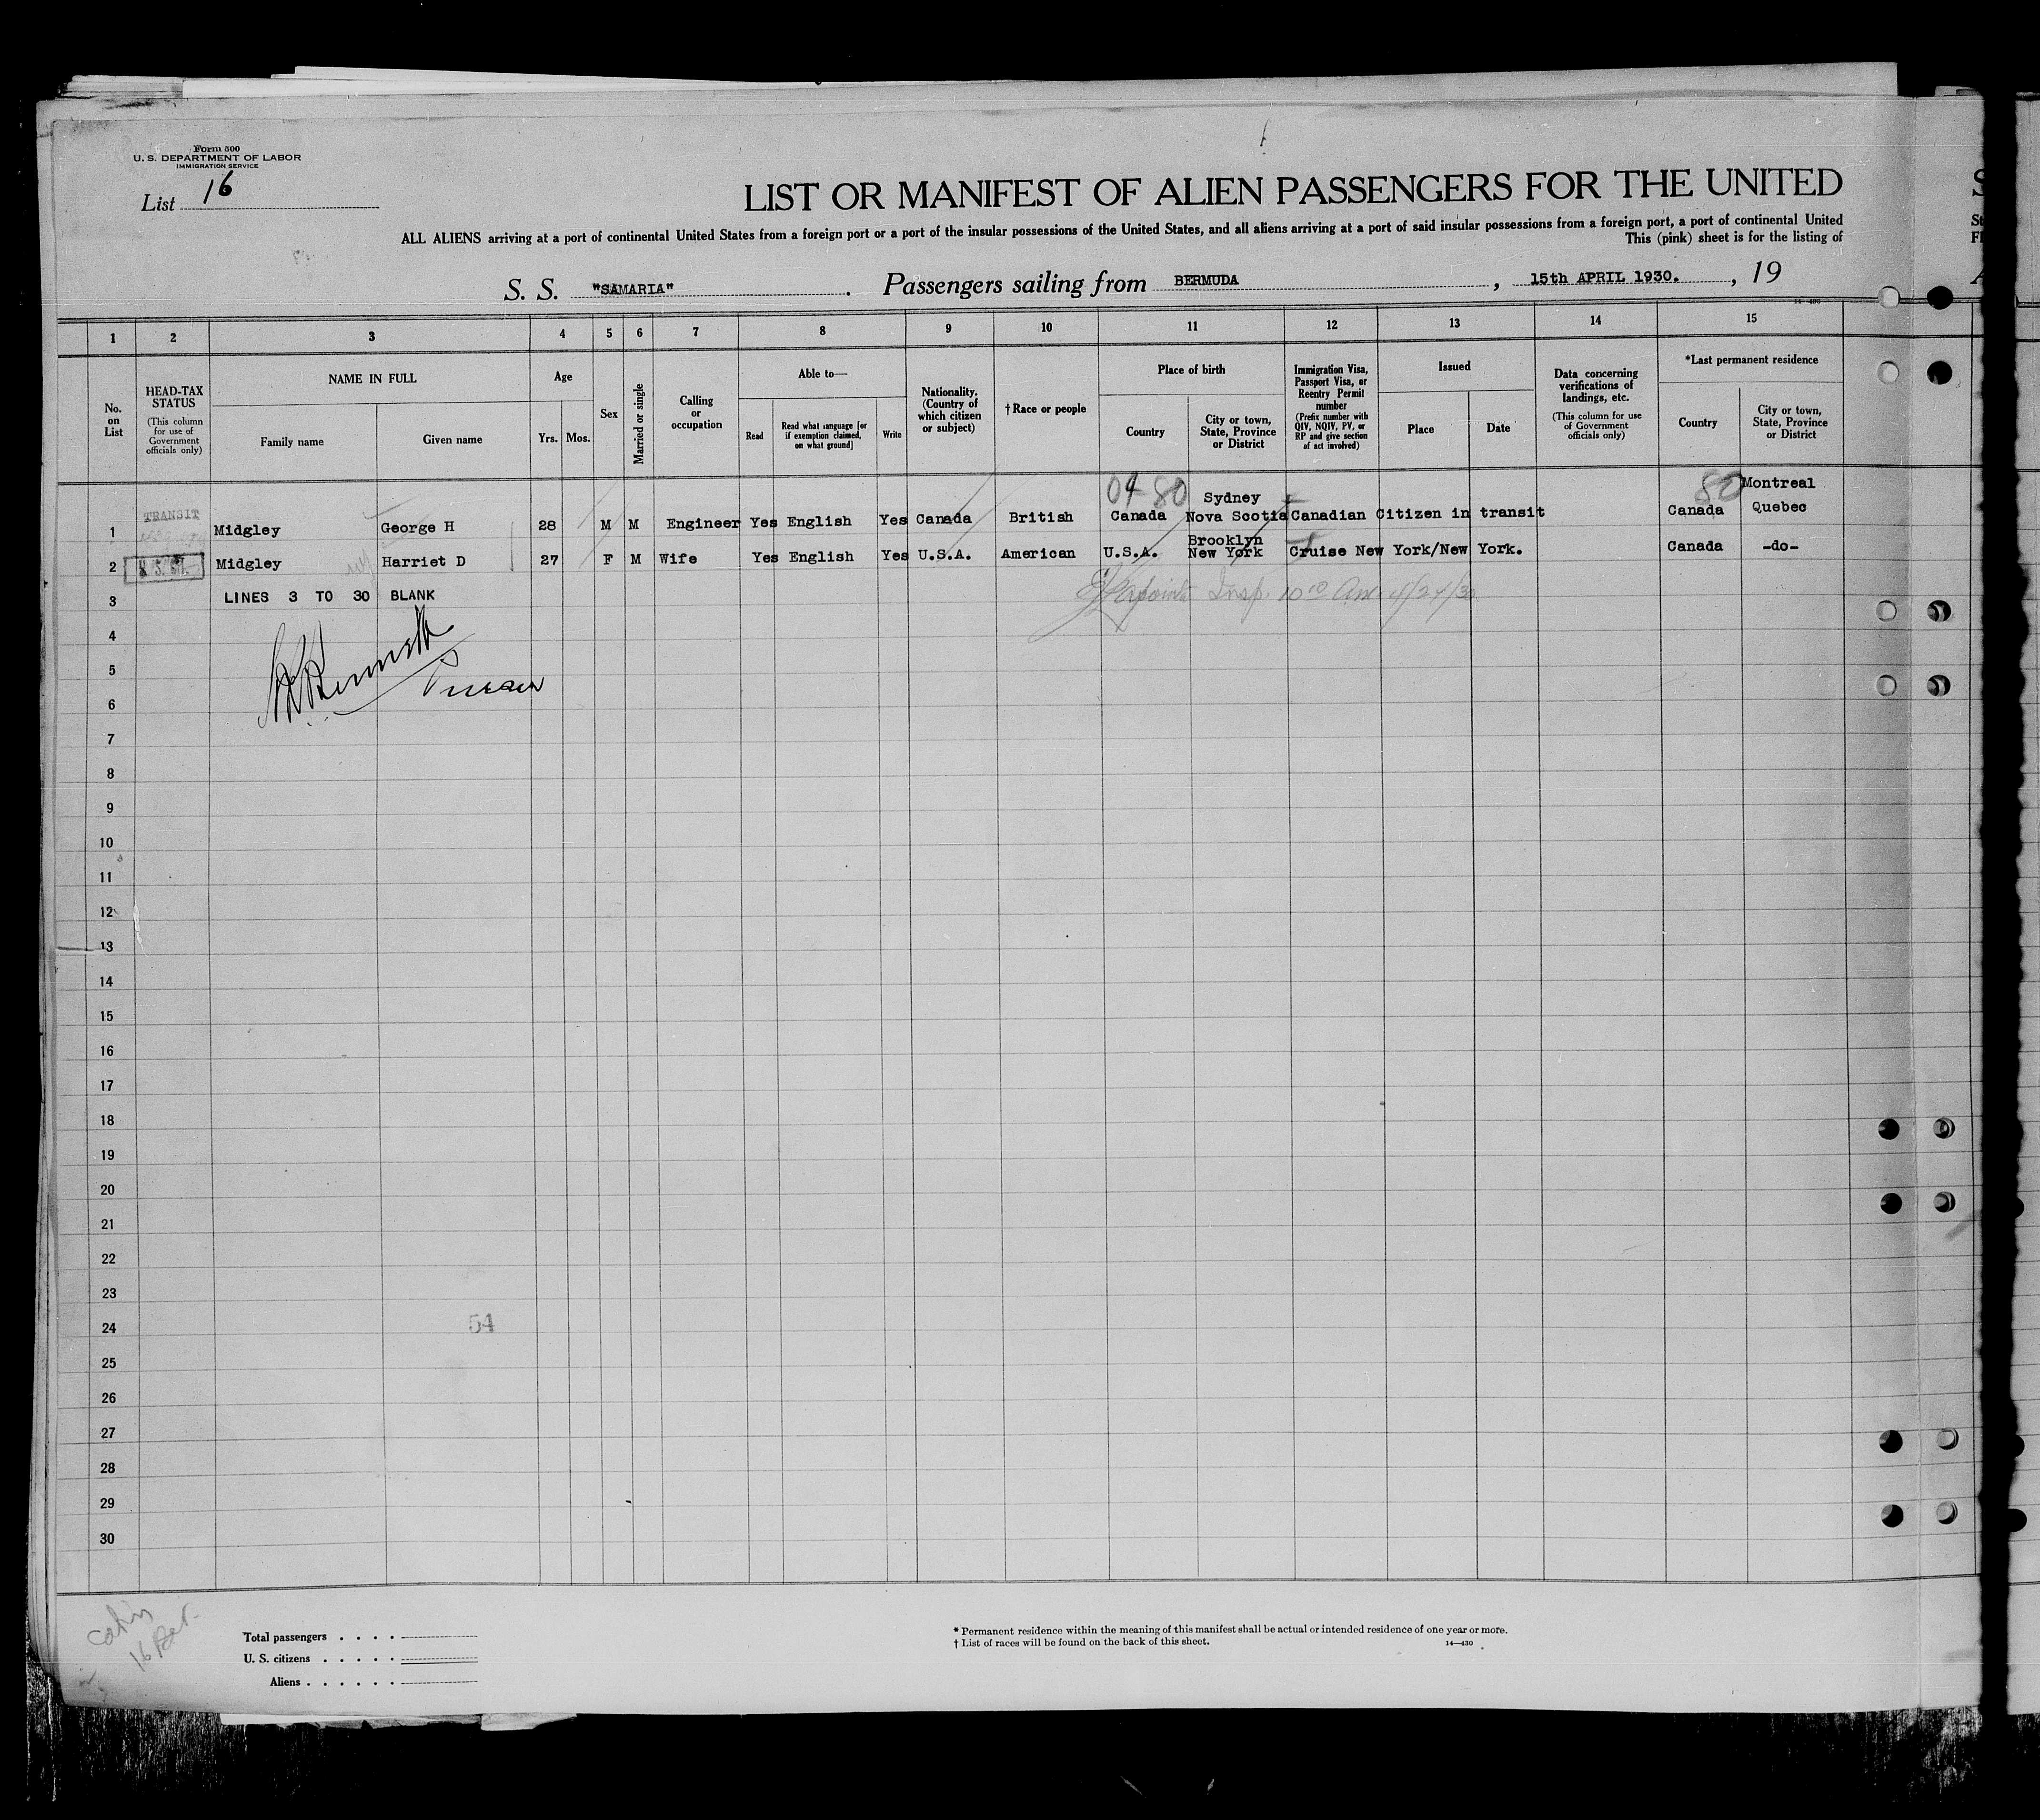 Form 500
U. S. DEPARTMENT OF LABOR
IMMIGRATION SERVICE
List 16
LIST OR MANIFEST OF ALIEN PASSENGERS FOR THE UNITED
ALL ALIENS arriving at a port of continental United States from a foreign port or a port of the insular possessions of the United States, and all aliens arriving at a port of said insular possessions from a foreign port, a port of continental United
This (pink) sheet is for the listing of
S. S. "SAMARIA" . Passengers sailing from BERMUDA , 15th APRIL 1930. , 19
1 2 3 4 5 6 7 8 9 10 11 12 13 14 15
No. on List
HEAD-TAX STATUS
(This column for use of Government officials only)
NAME IN FULL
Family name
Given name
Age
Yrs. Mos.
Sex
Married or single
Calling or occupation
Able to—
Read
Read what language [or if exemption claimed, on what ground]
Write
Nationality. (Country of which citizen or subject)
† Race or people
Place of birth
Country
City or town, State, Province or District
Immigration Visa, Passport Visa, or Reentry Permit number
(Prefix number with QIV, NQIV, PV, or RP and give section of act involved)
Issued
Place
Date
Data concerning verifications of landings, etc.
(This column for use of Government officials only)
*Last permanent residence
Country
City or town, State, Province or District
80 Montreal
Sydney
1 TRANSIT Midgley George H 28 M M Engineer Yes English Yes Canada British Canada Nova Scotia Canadian Citizen in transit Canada Quebec
Brooklyn
2 Midgley Harriet D 27 F M Wife Yes English Yes U.S.A. American U.S.A. New York Cruise New York/New York. Canada -do-
3 LINES 3 TO 30 BLANK
4
5
6
7
8
9
10
11
12
13
14
15
16
17
18
19
20
21
22
23
24 54
25
26
27
28
29
30
Total passengers . . . .
U. S. citizens . . . . .
Aliens . . . . . .
* Permanent residence within the meaning of this manifest shall be actual or intended residence of one year or more.
† List of races will be found on the back of this sheet.
14—430